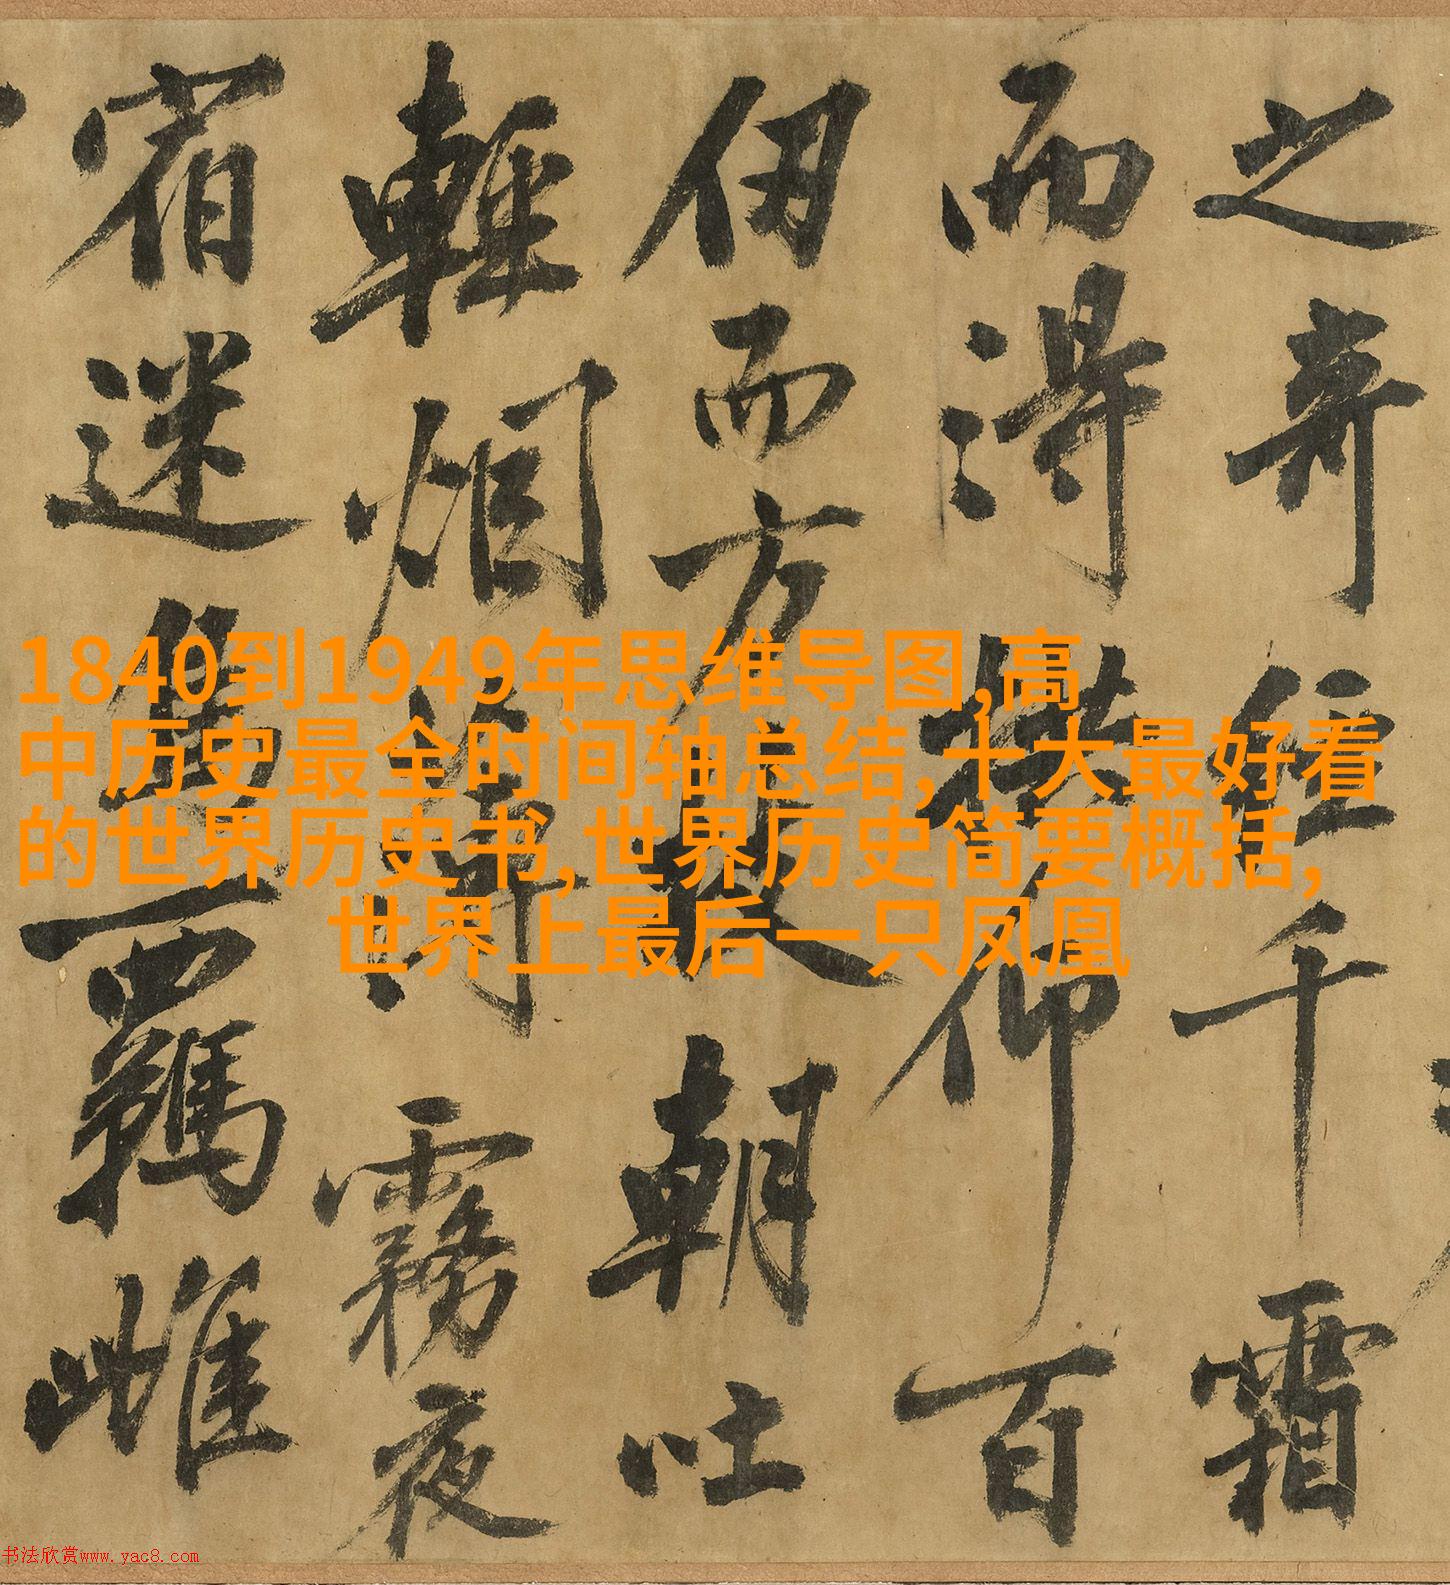 之奇径千霜
而得拱仰百
仞而方枝朝吐
輕烟薄霧夜
宿迷鳥羈雌
1840到1949年思维导图,高
中历史最全时间轴总结,十大最好看
的世界历史书,世界历史简要概括,
世界上最后一只凤凰
书法欣赏www.yac8.com